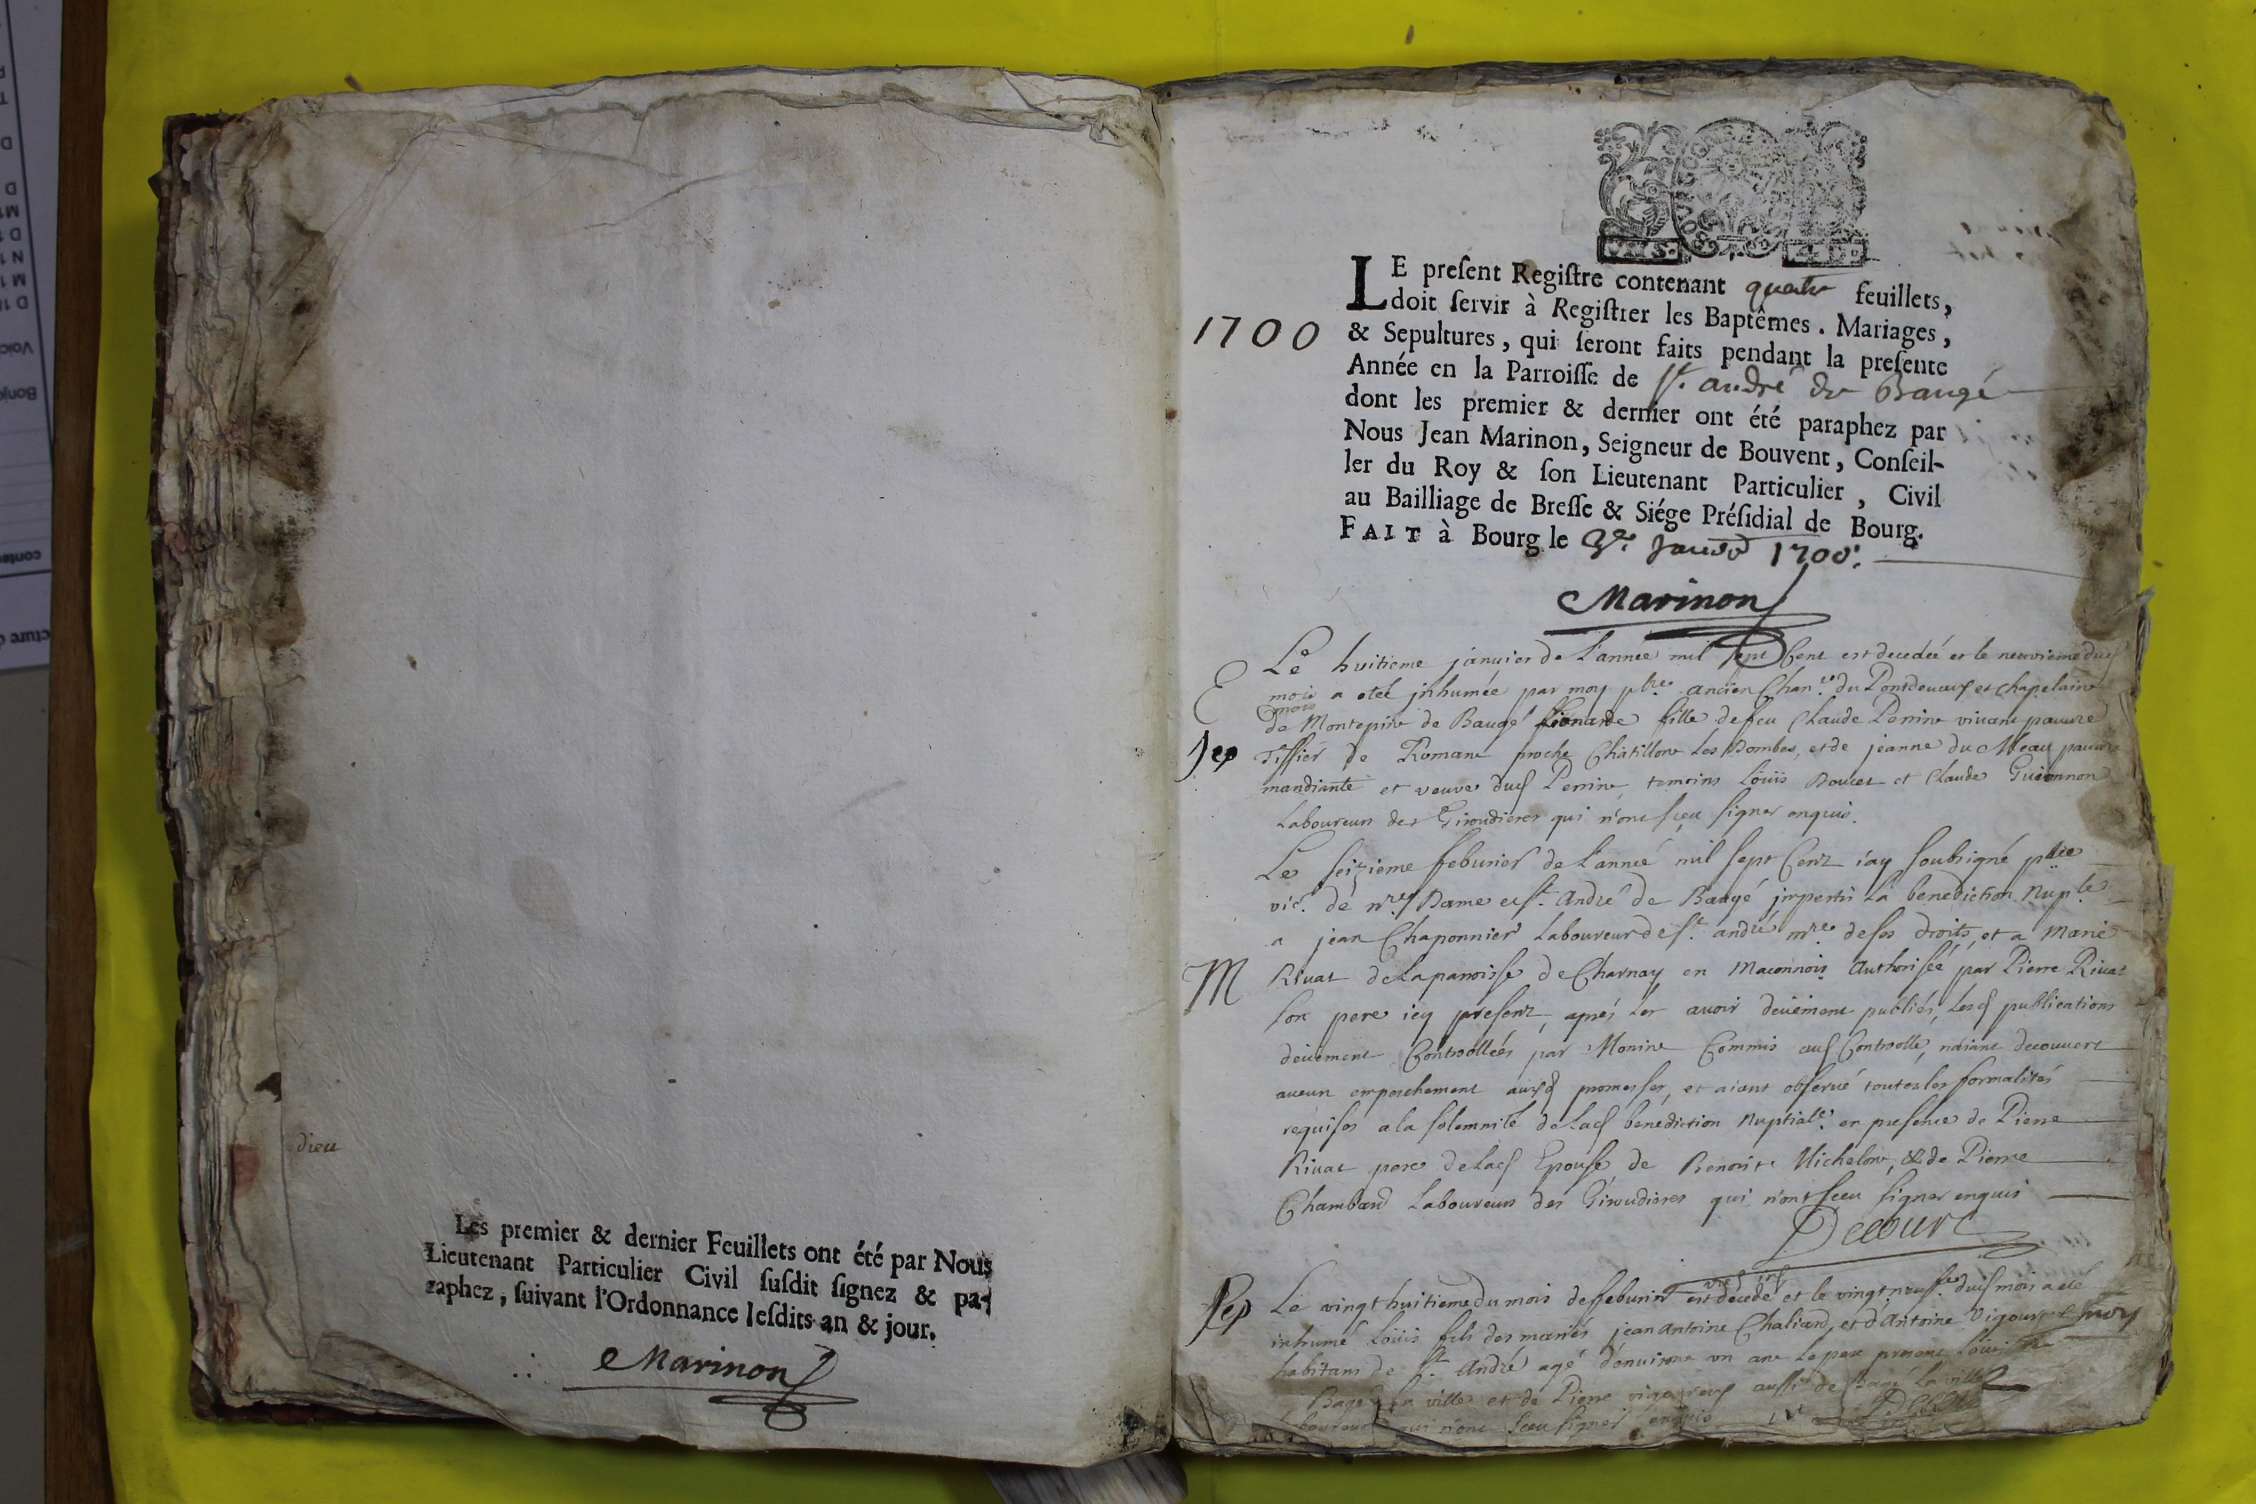 dieu
Les premier & dernier Feuillets ont été par Nous
Lieutenant Particulier Civil susdit signez & pa-
raphez, suivant l'Ordonnance lesdits an & jour.
Marinon
1700
LE present Registre contenant quatre feuillets,
doit servir à Registrer les Baptêmes. Mariages,
& Sepultures, qui seront faits pendant la presente
Année en la Parroisse de St. andré de Baugé
dont les premier & dernier ont été paraphez par
Nous Jean Marinon, Seigneur de Bouvent, Conseil-
ler du Roy & son Lieutenant Particulier, Civil
au Bailliage de Bresse & Siége Présidial de Bourg.
FAIT à Bourg le 1700.
Marinon
Le huitieme januier de L'annee mil sept Cent est decedée et le neuvieme dud
mois a eteé jnhumée par moy ptre ancien Chan.e du Pontdevaux et chapelain
de Montepin de Baugé Lionarde fille de feu Claude Perrin vivant pauvre
Sep Tissier de Romane proche Chatillon Les Dombes, et de jeanne du Meau pauvre
mandiante et veuve dud Perrin, temoins Loüis Boucet et Claude Guionnon
Laboureurs des Giroudieres qui n'ont sceu signer enquis.
Le seizieme feburier de L'anneé mil sept Cent i'ay soubsigné ptre
vic. de nre Dame et St. André de Baugé jmparti La benediction Nup.le
a jean Chaponnier Laboureur de St. andré mre de ses droits, et a Marie
M Rivat de La paroisse de Charnay en Maconnois authorisée par Pierre Rivat
son pere icy present, aprés Les avoir deüement publiés, Lesd publications
deüement Controolleés par Monin Commis aud Controolle, naiant decouvert
aucun empechement auxd promesses, et aiant observé toutes les formalités
requises a la solemnité de Lad benediction nuptiale. en presence de Pierre
Rivat pere de Lad Epouse de Benoit Michelon, & de Pierre
Chambard Laboureurs des Giroudieres qui n'ont sceu signer enquis
Decourt
Sep Le vingt huitieme du mois de feburier est decedé et le vingt neuf dud mois a eté
inhumé Loüis fils des mariés jean antoine Chaliand, et d'antoine Vigour
habitans de St. André agé d'environ un an Le pere present
Bagé La ville et de Pierre aussi de Bagé la ville
Laboureurs qui n'ont sceu signer enquis